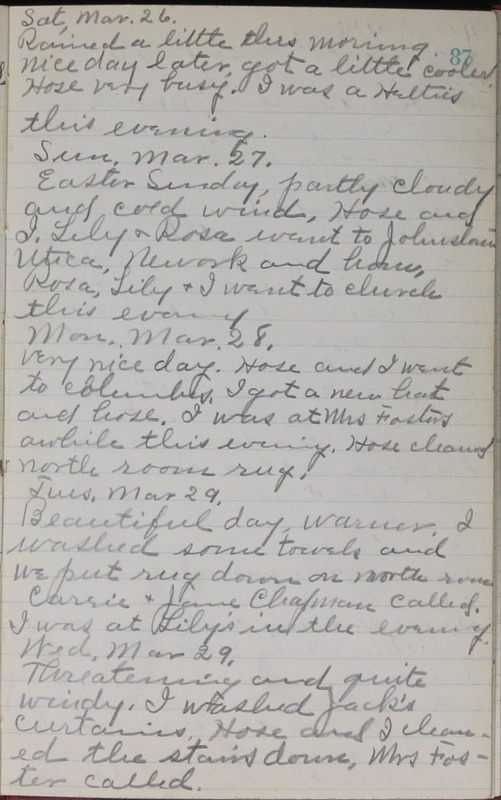 Sat, Mar. 26.
87
Rained a little this morning.
nice day later, got a little cooler.
Hose very busy. I was a Helties
this evening.
Sun. Mar. 27.
Easter Sunday, partly cloudy
and cold wind, Hose and
I, Lily & Rosa went to Johnstown
Utica, Nework and home,
Rosa, Lily & I went to church
this evening
Mon. Mar. 28.
very nice day. Hose and I went
to Columbus, I got a new hat
and hose. I was at Mrs Fosters
awhile this evening. Hose cleaned
north room rug.
Tues. Mar 29.
Beautiful day, warmer. I
washed some towels and
we put rug down on north room
Carrie & Jane Chapman called.
I was at Lilys in the evening.
Wed, Mar 29.
Threatening and quite
windy. I washed Jack's
curtains, Hose and I clean-
ed the stairs down, Mrs Fos-
ter called.